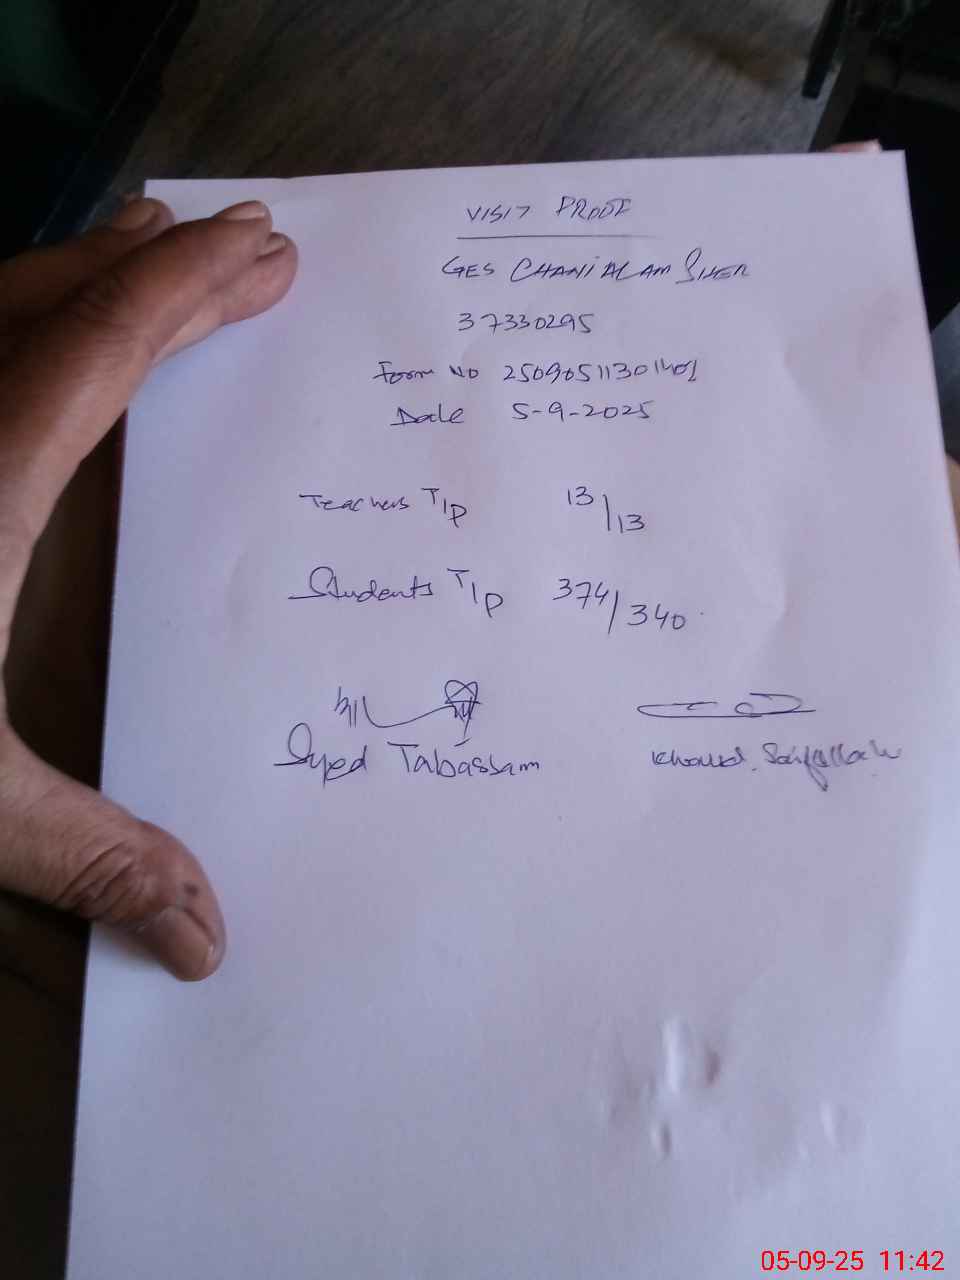 VISIT PROOF
GES CHANI ALAM SHER
37330295
Form No 25090511301401
Date 5-9-2025
Teachers T/P 13/13
Students T/P 374/340
Syed Tabassam
Khalid Saifullah
05-09-25 11:42